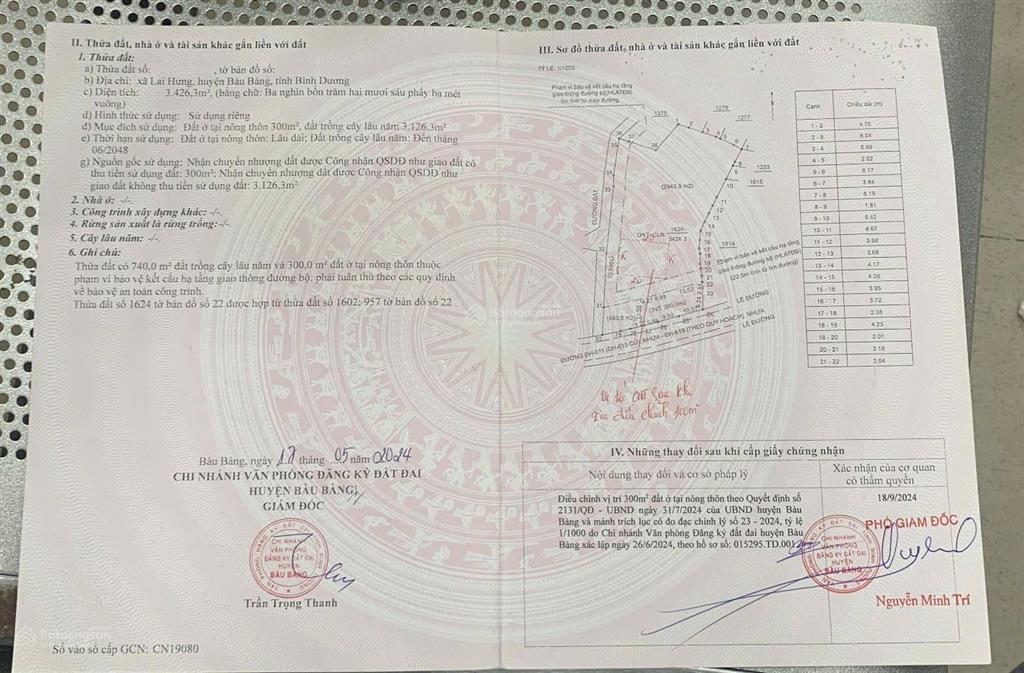 II. Thửa đất, nhà ở và tài sản khác gắn liền với đất
1. Thửa đất:
a) Thửa đất số: , tờ bản đồ số:
b) Địa chỉ: xã Lai Hưng, huyện Bàu Bàng, tỉnh Bình Dương
c) Diện tích: 3.426,3m², (bằng chữ: Ba nghìn bốn trăm hai mươi sáu phẩy ba mét
vuông)
d) Hình thức sử dụng: Sử dụng riêng
đ) Mục đích sử dụng: Đất ở tại nông thôn 300m², đất trồng cây lâu năm 3.126,3m²
e) Thời hạn sử dụng: Đất ở tại nông thôn: Lâu dài; Đất trồng cây lâu năm: Đến tháng
06/2048
g) Nguồn gốc sử dụng: Nhận chuyển nhượng đất được Công nhận QSDĐ như giao đất có
thu tiền sử dụng đất: 300m²; Nhận chuyển nhượng đất được Công nhận QSDĐ như
giao đất không thu tiền sử dụng đất: 3.126,3m²
2. Nhà ở: -/-.
3. Công trình xây dựng khác: -/-.
4. Rừng sản xuất là rừng trồng: -/-.
5. Cây lâu năm: -/-.
6. Ghi chú:
Thửa đất có 740,0 m² đất trồng cây lâu năm và 300,0 m² đất ở tại nông thôn thuộc
phạm vi bảo vệ kết cấu hạ tầng giao thông đường bộ; phải tuân thủ theo các quy định
về bảo vệ an toàn công trình.
Thửa đất số 1624 tờ bản đồ số 22 được hợp từ thửa đất số 1602; 957 tờ bản đồ số 22
Bàu Bàng, ngày 17 tháng 05 năm 2024
CHI NHÁNH VĂN PHÒNG ĐĂNG KÝ ĐẤT ĐAI
HUYỆN BÀU BÀNG
GIÁM ĐỐC
CHI NHÁNH
VĂN PHÒNG
ĐĂNG KÝ ĐẤT ĐAI
HUYỆN
BÀU BÀNG
Trần Trọng Thanh
Số vào sổ cấp GCN: CN19080
Batdongsan
III. Sơ đồ thửa đất, nhà ở và tài sản khác gắn liền với đất
TỶ LỆ: 1/1200
Phạm vi bảo vệ kết cấu hạ tầng
giao thông đường bộ(HLATĐB)
5m tính từ mép đường.
1275
1276
1277
1223
1615
(2943.3 m2)
ĐƯỜNG ĐẤT
ONT+CLN 1624
3426.3
1614
Phạm vi bảo vệ kết cấu hạ tầng
giao thông đường bộ (HLATĐB)
(22.5m tính từ tim đường)
ONT: 300.0m2
(483.0 m2)
LỀ ĐƯỜNG
ĐƯỜNG ĐH-611 (ĐH-615 CŨ) NHỰA - ĐH-619 (THEO QUY HOẠCH) NHỰA
LỀ ĐƯỜNG
Vị trí ONT sau khi
xin điều chỉnh 300m²
Cạnh Chiều dài (m)
1 - 2 4.76
2 - 3 6.04
3 - 4 5.99
4 - 5 2.02
5 - 6 6.17
6 - 7 3.84
7 - 8 6.19
8 - 9 1.81
9 - 10 6.52
10 - 11 6.67
11 - 12 3.98
12 - 13 3.68
13 - 14 4.17
14 - 15 4.08
15 - 16 3.95
16 - 17 3.72
17 - 18 2.35
18 - 19 4.23
19 - 20 2.01
20 - 21 3.18
21 - 22 2.64
IV. Những thay đổi sau khi cấp giấy chứng nhận
Nội dung thay đổi và cơ sở pháp lý
Xác nhận của cơ quan
có thẩm quyền
Điều chỉnh vị trí 300m² đất ở tại nông thôn theo Quyết định số
2131/QĐ - UBND ngày 31/7/2024 của UBND huyện Bàu
Bàng và mảnh trích lục có đo đạc chỉnh lý số 23 - 2024, tỷ lệ
1/1000 do Chi nhánh Văn phòng Đăng ký đất đai huyện Bàu
Bàng xác lập ngày 26/6/2024, theo hồ sơ số: 015295.TD.001
18/9/2024
PHÓ GIÁM ĐỐC
CHI NHÁNH
VĂN PHÒNG
ĐĂNG KÝ ĐẤT ĐAI
HUYỆN
BÀU BÀNG
Nguyễn Minh Trí